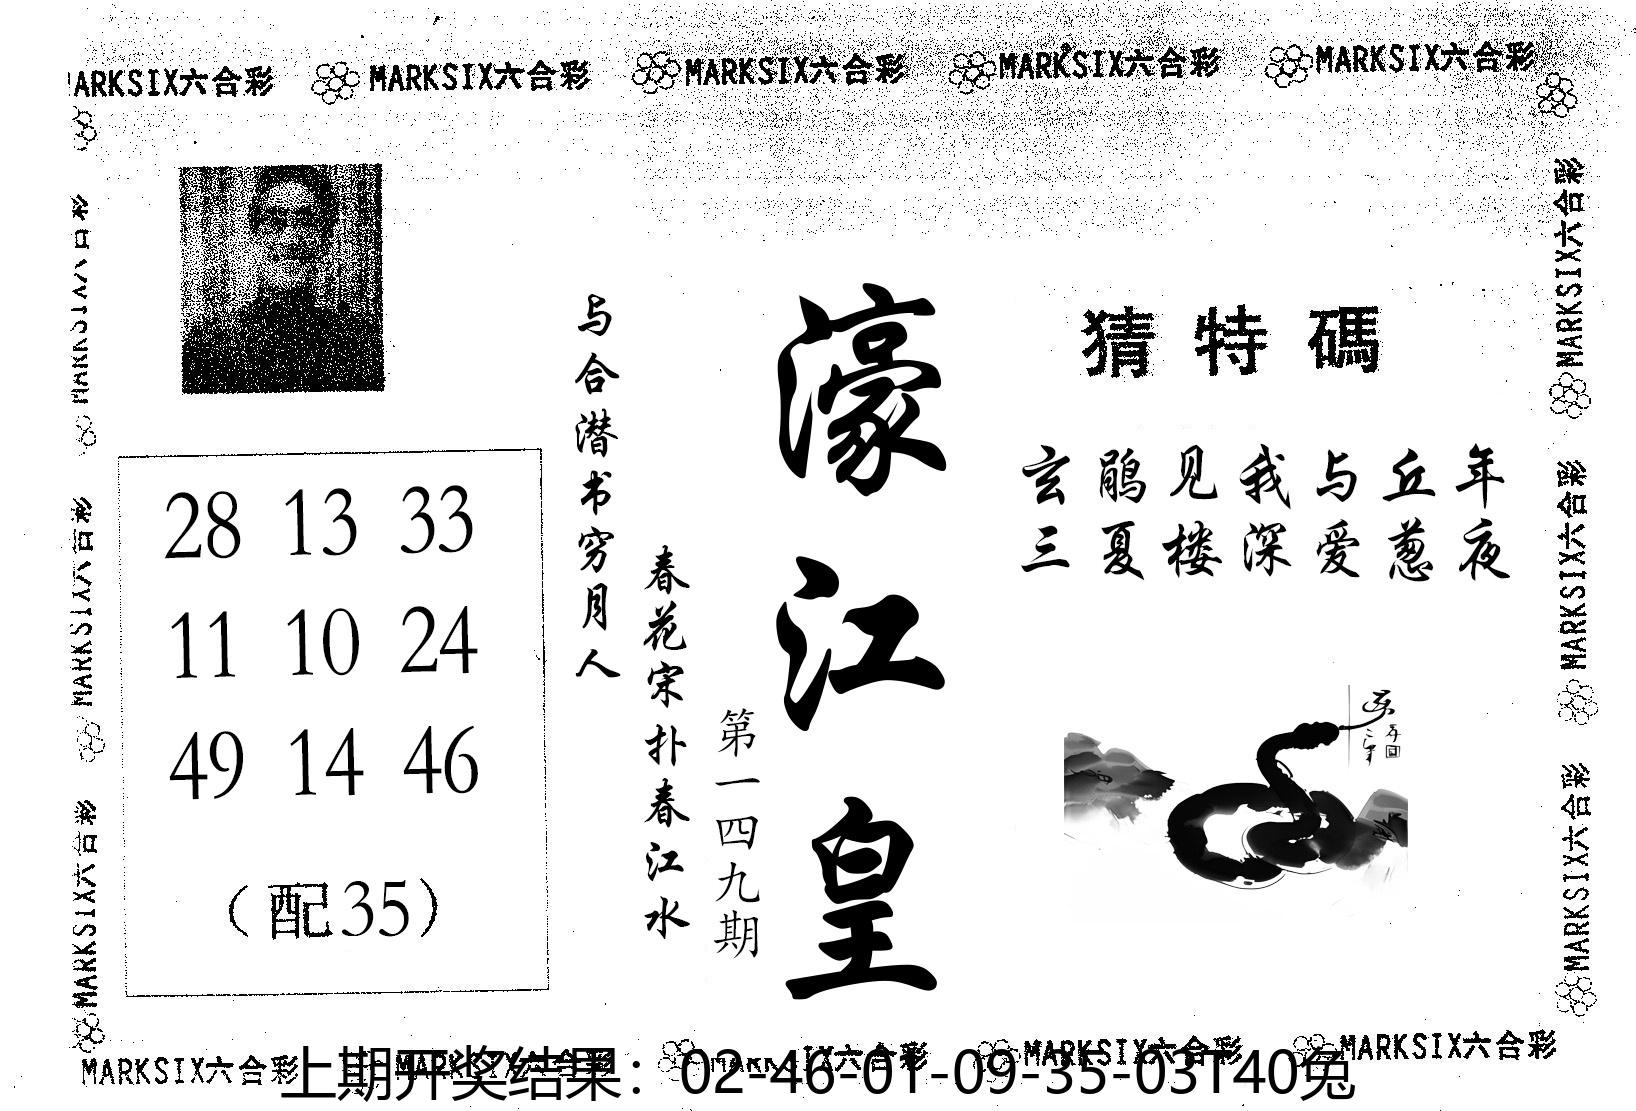 MARKSIX六合彩 MARKSIX六合彩 MARKSIX六合彩 MARKSIX六合彩 MARKSIX六合彩
MARKSIX六合彩
MARKSIX六合彩
MARKSIX六合彩
MARKSIX六合彩
MARKSIX六合彩
MARKSIX六合彩
28 13 33
11 10 24
49 14 46
（配35）
与合潜书穷月人
春花宋扑春江水
第一四九期
濠江皇
猜特碼
玄鹃见我与丘年
三夏楼深爱葱夜
MARKSIX六合彩 MARKSIX六合彩 MARKSIX六合彩 MARKSIX六合彩 MARKSIX六合彩
上期开奖结果：02-46-01-09-35-03T40兔